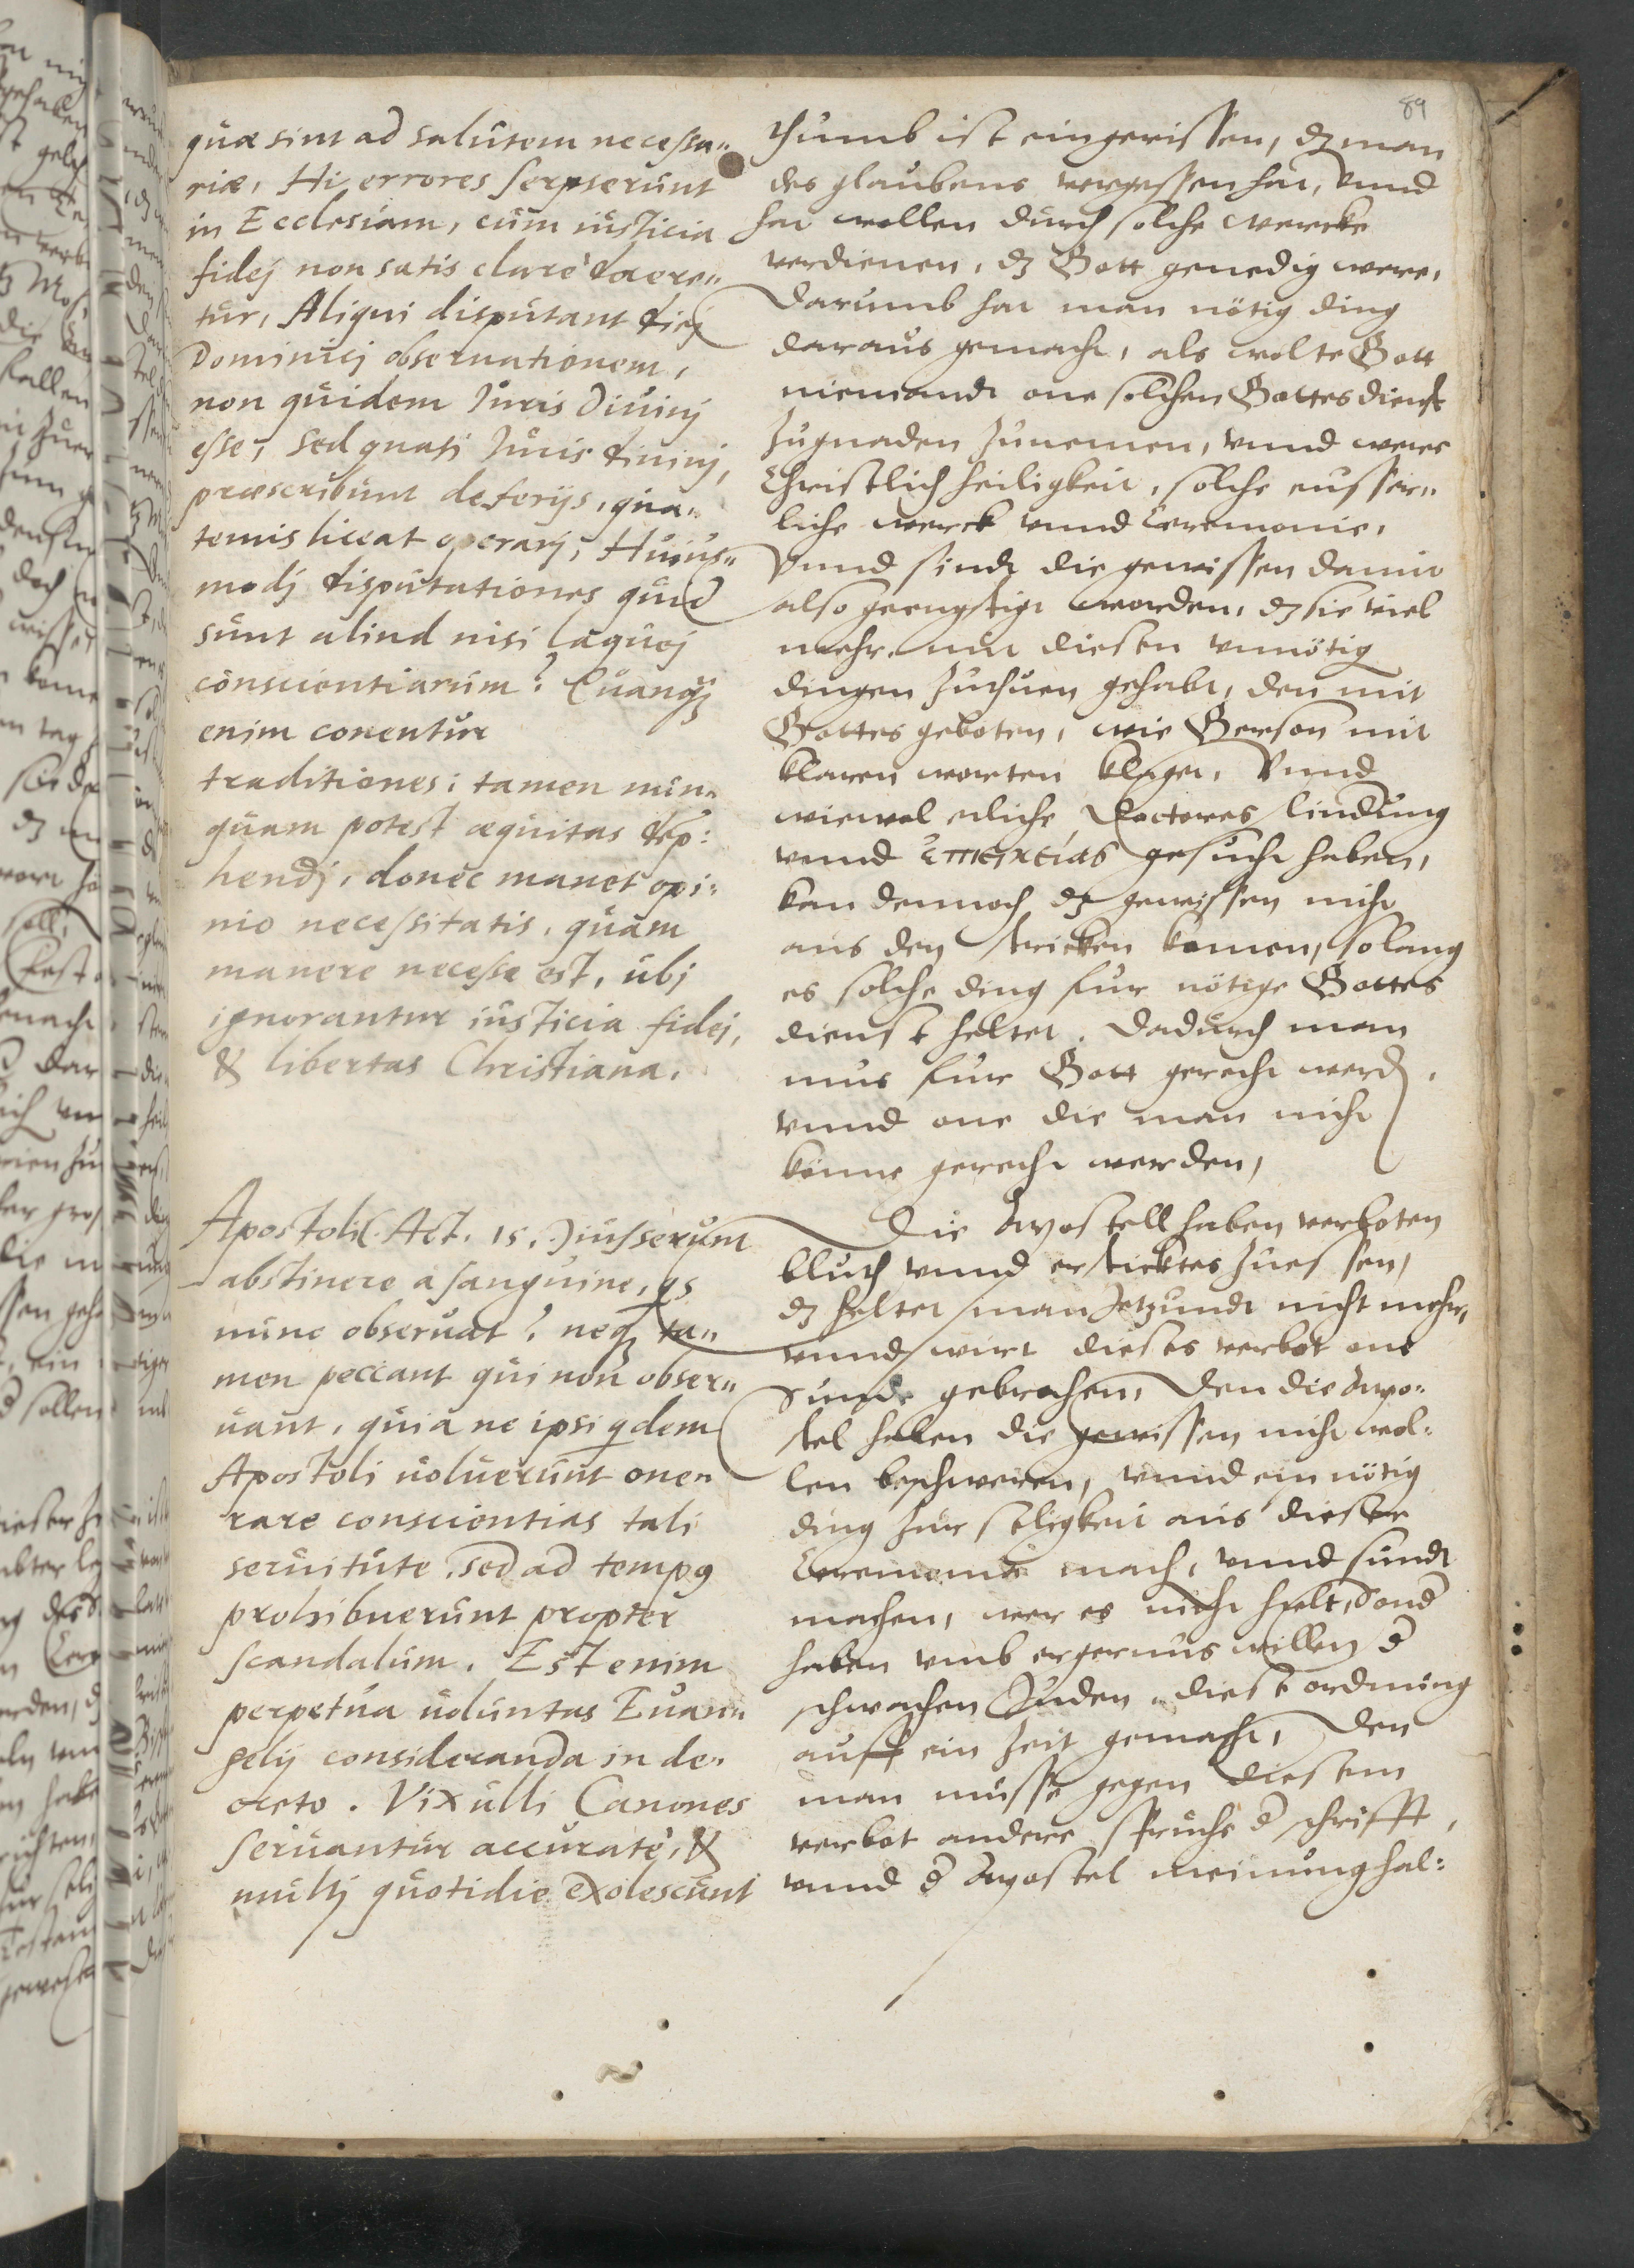 89
quæ sint ad salutem necessa„
riæ, Hi errores serpserunt
in Ecclesiam, cum iusticia
fidej non satis clarè docere„
tur, Aliqui disputant diej
Dominicj obseruationem,
non quidem Juris Diuinj
esse, sed quasi Juris diuinj,
præscribunt de ferijs, qua„
tenus liceat operarj, Huius„
modj disputationes quid
sunt aliud nisi laquej
conscientiarum? Quanqȝ
enim conentur
traditiones: tamen nun„
quam potest æquitas dep:
hendj, donec manet opi:
nio necessitatis, quam
manere necesse est, ubj
ignorantur iusticia fidej,
& libertas Christiana.
Apostoli (Act. 15.) iusserunt
abstinere a sanguine, qs
nunc obseruat? neqȝ ta„
men peccant qui non obser„
uant, quia ne ipsi qdem
Apostoli uoluerunt one„
rare conscientias tali
seruitute, sed ad tempꝯ
prohibuerunt propter
scandalum. Est enim
perpetua uoluntas Euan„
gelij consideranda in de„
creto. Vix ulli Canones
seruantur accuratè, &
multj quotidie exolescunt
thumb ist eingerissen, dȝ man
des glaubens vergessen hat, Vnnd
hat wollen durch solche wercke
verdienen, dȝ Gott genedig were,
Darumb hat man nötig ding
daraus gemacht, als wolte Gott
niemandt one solchen Gottesdienst
zugnaden zunemen, vnnd were
Christlich heiligkeit, solche eusser„
liche werck vnnd Ceremonie,
Vnnd sindt die gewissen damit
also geengstigt worden, dȝ sie viel
mehr mit diesen vnnötig
dingen zuthuen gehabt, den mit
Gottes geboten, wie Gerson mit
klaren worten klaget, Vnnd
wiewol etliche Doctores lindung
vnnd ἐπιεικείας gesucht haben,
kan dennoch dȝ gewissen nicht
aus den stricken komen, solang
es solche ding fur nötige Gottes
dienst heltet. Dadurch man
mus fur Gott gerecht werdȝ,
vnnd one die man nicht
könne gerecht werden,
Die Apostell haben verboten
bluth vnnd ersticktes zuessen,
dȝ heltet man Jetzundt nicht mehr,
vnnd wirt dieses verbot one
Sunde gebrochen, Den die Apo:
stel haben die gewissen nicht wol:
len beschweren, vnnd ein nötig
ding zur seligkeit aus dieser
Ceremonie mach, vnnd sundt
machen, wer es nicht helt, Sond
haben vmb ergernus willen d
schwachen Juden diese ordnung
auff ein Zeit gemacht, Den
man müsse gegen diesem
verbot andere spruche d schrifft,
vnnd d Apostel meinung hal: